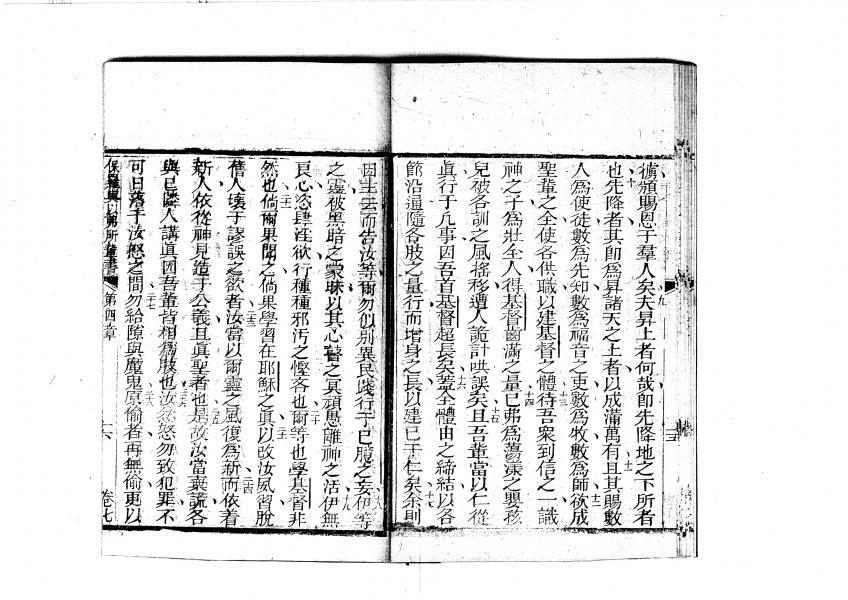 擄頒賜恩于羣人矣夫昇上者何哉卽先降地之下所者
也先降者其卽為昇諸天之上者以成滿萬有且其賜數
人為使徒數為先知數為福音之吏數為牧數為師欲成
聖輩之全使各供職以建基督之體待吾衆到信之一識
神之子為壯全人得基督齒滿之量已弗為蕩漾之嬰孩
兒被各訓之風搖移遭人詭計哄誤矣且吾輩當以仁從
眞行于凡事因吾首基督超長矣蓋全體由之締結以各
節沿通隨各肢之量行而增身之長以建己于仁矣余則
因主云而告汝等爾勿似别異民踐行于已臆之妄伊等
之靈被黑暗之蒙昧以其心瞽之冥頑愚離神之活伊無
良心恣肆淫欲行種種邪汚之慳吝也爾等也學基督非
然也倘爾果聞之倘果學習在耶穌之眞以改汝夙習脫
舊人壞于謬誤之欲者汝當以爾靈之風復為新而依着
新人依從神見造于公義且眞聖者也是故汝當棄謊各
與己隣人講眞因吾輩皆相為肢也汝忿怒勿致犯罪不
可日落于汝怒之間勿給隙與魔鬼原偷者再無偷更以
保羅與 所書 第四章 卷七
九
十
十二
十三
十四
十五
十六
十七
十八
十九
二十
二十二
二十三
二十四
二十五
二十六
二十七
二十八